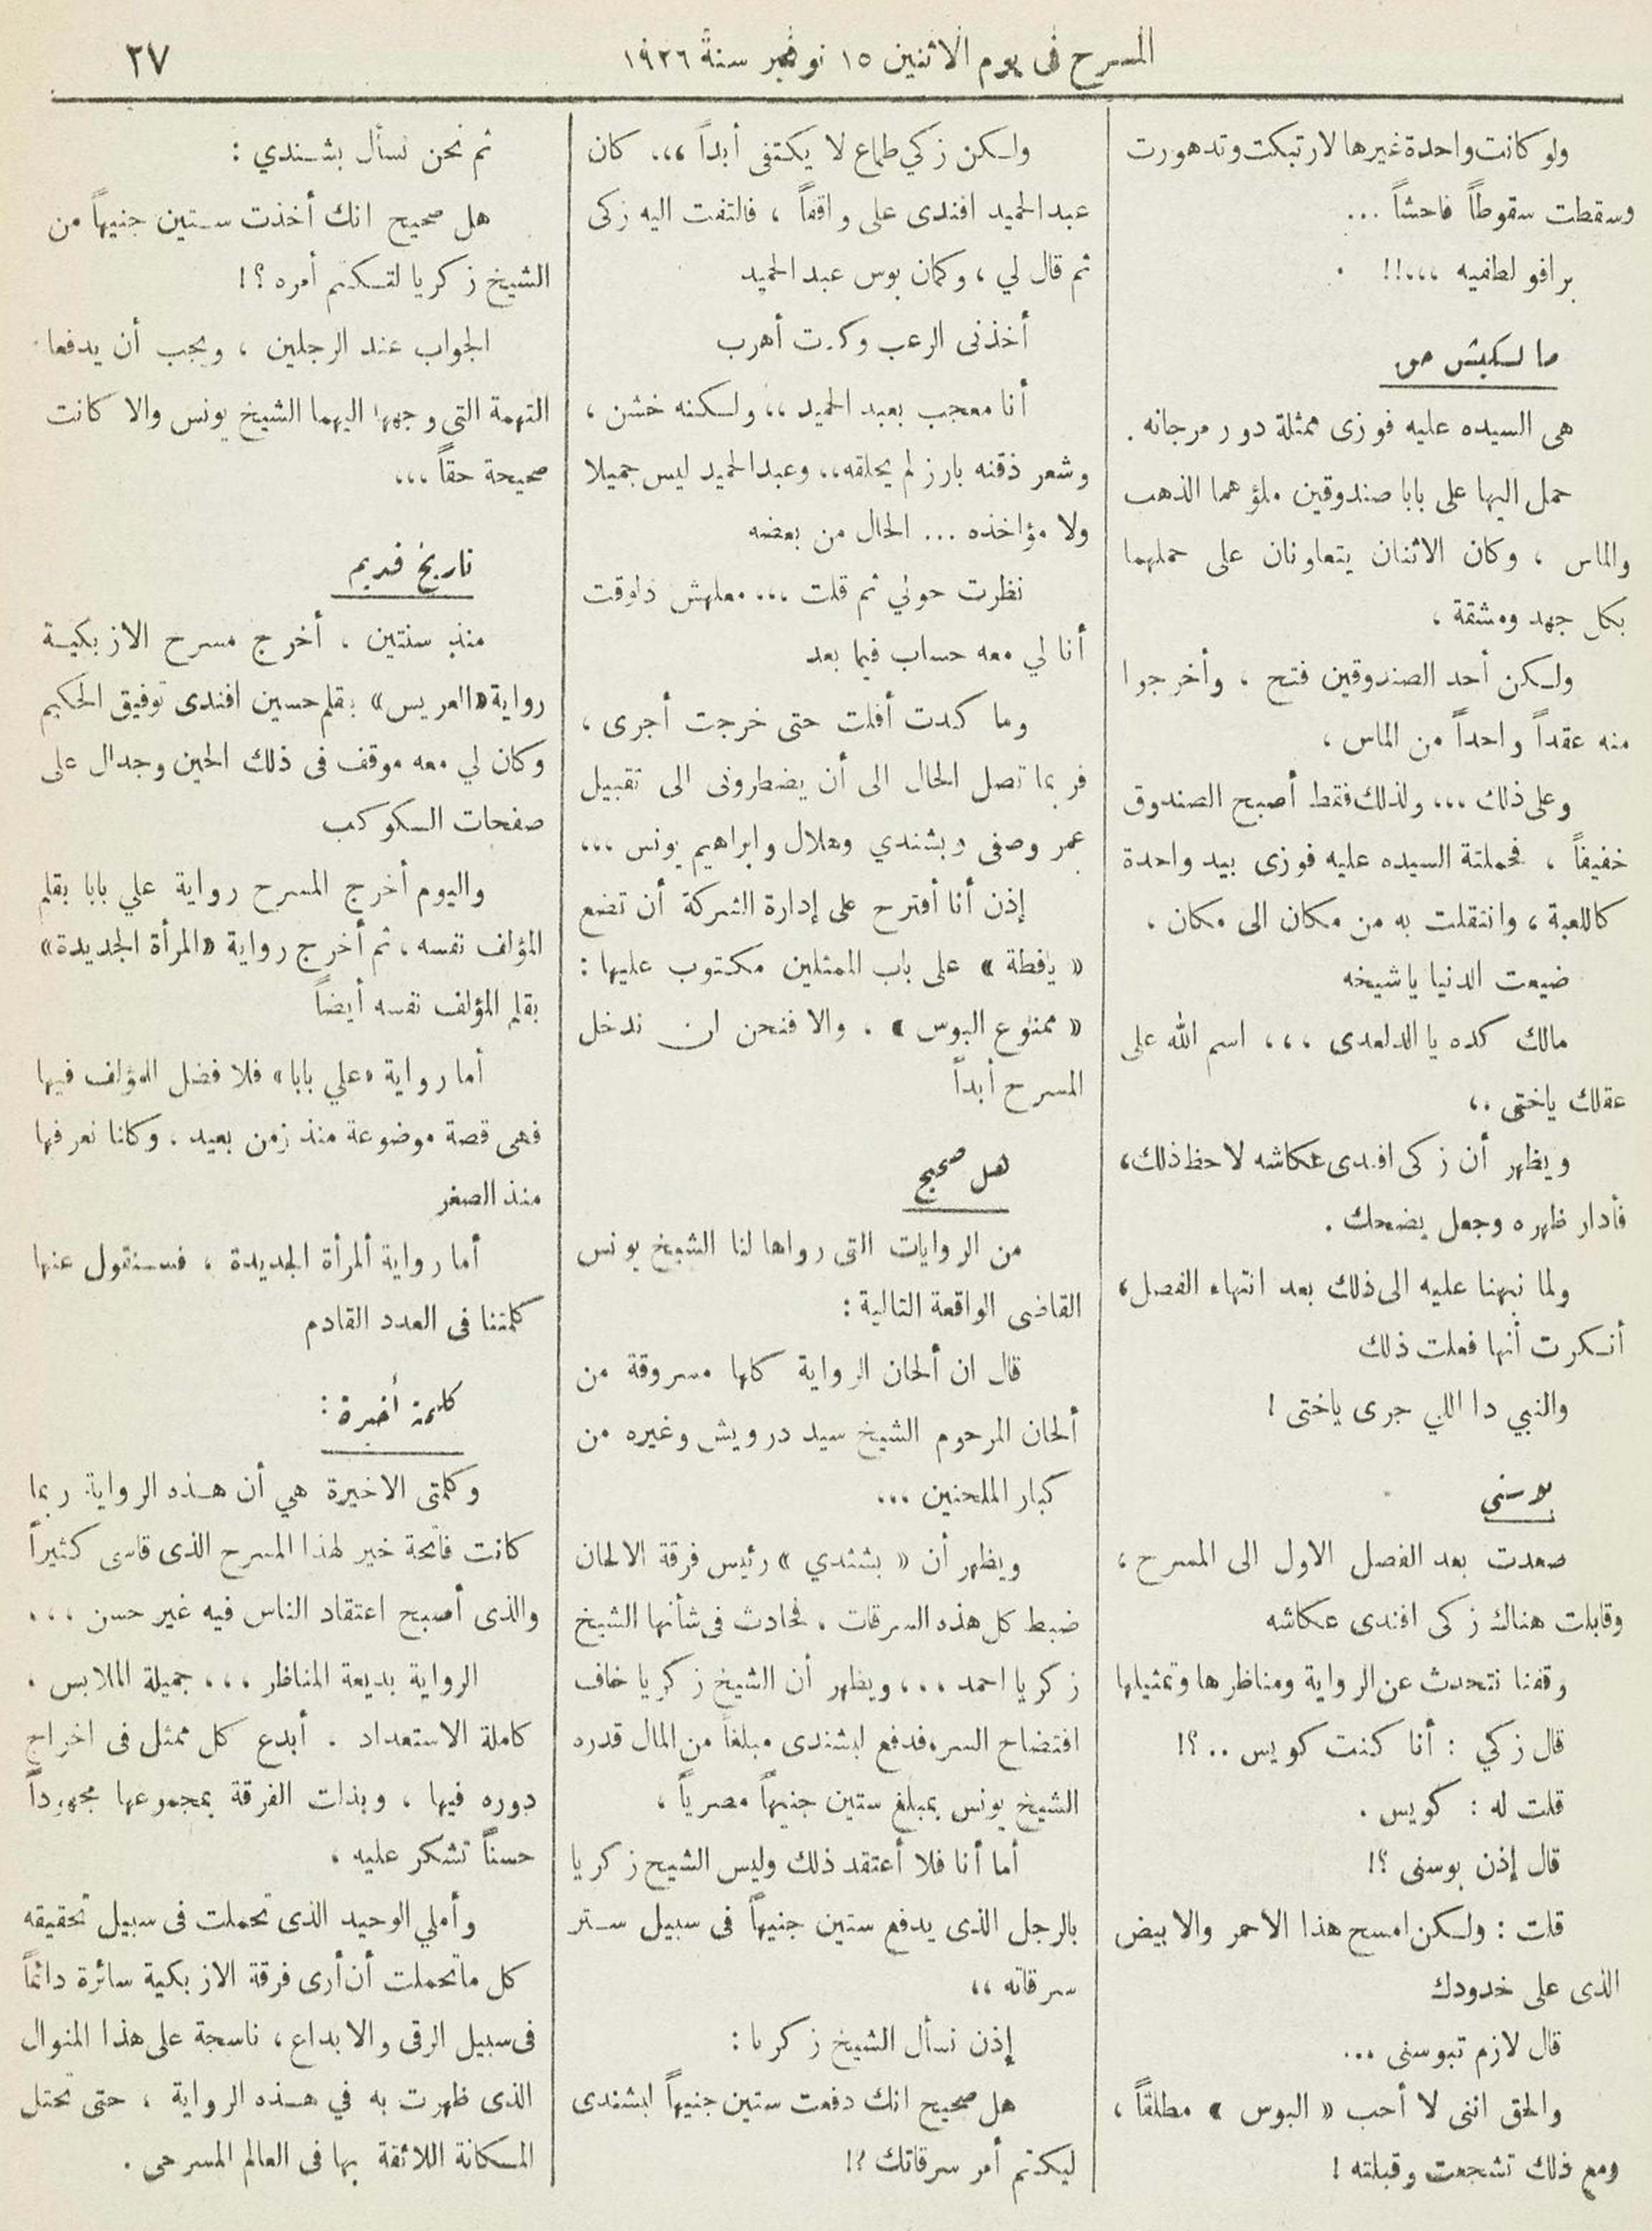 المسرح في يوم الاثنين ١٥ نوفمبر سنة ١٩٢٦
٢٧
ولو كانت واحدة غيرها لارتبكت وتدهورت
وسقطت سقوطاً فاحشاً ...
برافو لطفيه ،،،!!
ما لكيش حق
هى السيده عليه فوزى ممثلة دور مرجانه .
حمل اليها على بابا صندوقين ملؤهما الذهب
والماس ، وكان الاثنان يتعاونان على حملهما
بكل جهد ومشقة ،
ولكن أحد الصندوقين فتح ، وأخرجوا
منه عقداً واحداً من الماس ،
وعلى ذلك ،،، ولذلك فقط أصبح الصندوق
خفيفاً ، فحملتة السيده عليه فوزى بيد واحدة
كاللعبة ، وانتقلت به من مكان الى مكان ،
ضيعت الدنيا ياشيخه
مالك كده يا الدلعدى ،،، اسم الله على
عقلك ياختى .،
ويظهر أن زكى افندى عكاشه لاحظ ذلك،
فأدار ظهره وجعل يضحك .
ولما نبهنا عليه الى ذلك بعد انتهاء الفصل،
أنكرت أنها فعلت ذلك
والنبي دا اللي جرى ياختى !
بوسنى
صعدت بعد الفصل الاول الى المسرح ،
وقابلت هناك زكى افندى عكاشه
وقفنا نتحدث عن الرواية ومناظرها وتمثيلها
قال زكي : أنا كنت كويس ..؟!
قلت له : كويس .
قال إذن بوسنى ؟!
قلت : ولكن امسح هذا الاحمر والابيض
الذى على خدودك
قال لازم تبوسنى ...
والحق اننى لا أحب « البوس » مطلقاً ،
ومع ذلك تشجعت وقبلته !
ولكن زكي طماع لا يكتفى أبداً ،،، كان
عبد الحميد افندى على واقفاً ، فالتفت اليه زكى
ثم قال لي ، وكمان بوس عبد الحميد
أخذنى الرعب وكدت أهرب
أنا معجب بعبد الحميد ،، ولكنه خشن ،
وشعر ذقنه بارز لم يحلقه،، وعبد الحميد ليس جميلا
ولا مؤاخذه ... الحال من بعضه
نظرت حولي ثم قلت ،،، معلهش دلوقت
أنا لي معه حساب فيما بعد
وما كدت أفلت حتى خرجت أجرى ،
فربما تصل الحال الى أن يضطرونى الى تقبيل
عمر وصفى وبشندي وهلال وابراهيم يونس ...
إذن أنا أقترح على إدارة الشركة أن تضع
« يافطة » على باب الممثلين مكتوب عليها :
« ممنوع البوس » . والا فنحن لن ندخل
المسرح أبداً
هل صحيح
من الروايات التى رواها لنا الشيخ يونس
القاضى الواقعة التالية :
قال ان ألحان الرواية كلها مسروقة من
ألحان المرحوم الشيخ سيد درويش وغيره من
كبار الملحنين ...
ويظهر أن « بشندي » رئيس فرقة الالحان
ضبط كل هذه السرقات ، فحادث فى شأنها الشيخ
زكريا احمد ،،، ويظهر أن الشيخ زكريا خاف
افتضاح السر، فدفع لبشندى مبلغاً من المال قدره
الشيخ يونس بمبلغ ستين جنيهاً مصرياً ،
أما أنا فلا أعتقد ذلك وليس الشيخ زكريا
بالرجل الذى يدفع ستين جنيهاً فى سبيل ستر
سرقاته ،،
إذن نسأل الشيخ زكريا :
هل صحيح انك دفعت ستين جنيهاً لبشندى
ليكتم أمر سرقاتك ؟!
ثم نحن نسأل بشندي :
هل صحيح انك أخذت ستين جنيهاً من
الشيخ زكريا لتكتم أمره ؟!
الجواب عند الرجلين ، ويجب أن يدفعا
التهمة التى وجهها اليهما الشيخ يونس والا كانت
صحيحة حقاً ،،،
تاريخ قديم
منذ سنتين ، أخرج مسرح الازبكية
رواية «العريس» بقلم حسين افندى توفيق الحكيم
وكان لي معه موقف فى ذلك الحين وجدال على
صفحات الكوكب
واليوم أخرج المسرح رواية علي بابا بقلم
المؤلف نفسه ، ثم أخرج رواية «المرأة الجديدة»
بقلم المؤلف نفسه أيضاً
أما رواية «علي بابا» فلا فضل للمؤلف فيها
فهى قصة موضوعة منذ زمن بعيد ، وكلنا نعرفها
منذ الصغر
أما رواية ألمرأة الجديدة ، فسنقول عنها
كلمتنا فى العدد القادم
كلمة أخيرة :
وكلمتى الاخيرة هي أن هذه الرواية ربما
كانت فاتحة خير لهذا المسرح الذى قاسى كثيراً
والذى أصبح اعتقاد الناس فيه غير حسن ،،،
الرواية بديعة المناظر ،،، جميلة الملابس .
كاملة الاستعداد . أبدع كل ممثل فى اخراج
دوره فيها ، وبذلت الفرقة بمجموعها مجهوداً
حسناً تشكر عليه ،
وأملي الوحيد الذى تحملت فى سبيل تحقيقه
كل ما تحملت أن أرى فرقة الازبكية سائرة دائماً
فى سبيل الرقى والابداع ، ناسجة على هذا المنوال
الذى ظهرت به في هذه الرواية ، حتى تحتل
المكانة اللائقة بها فى العالم المسرحى .